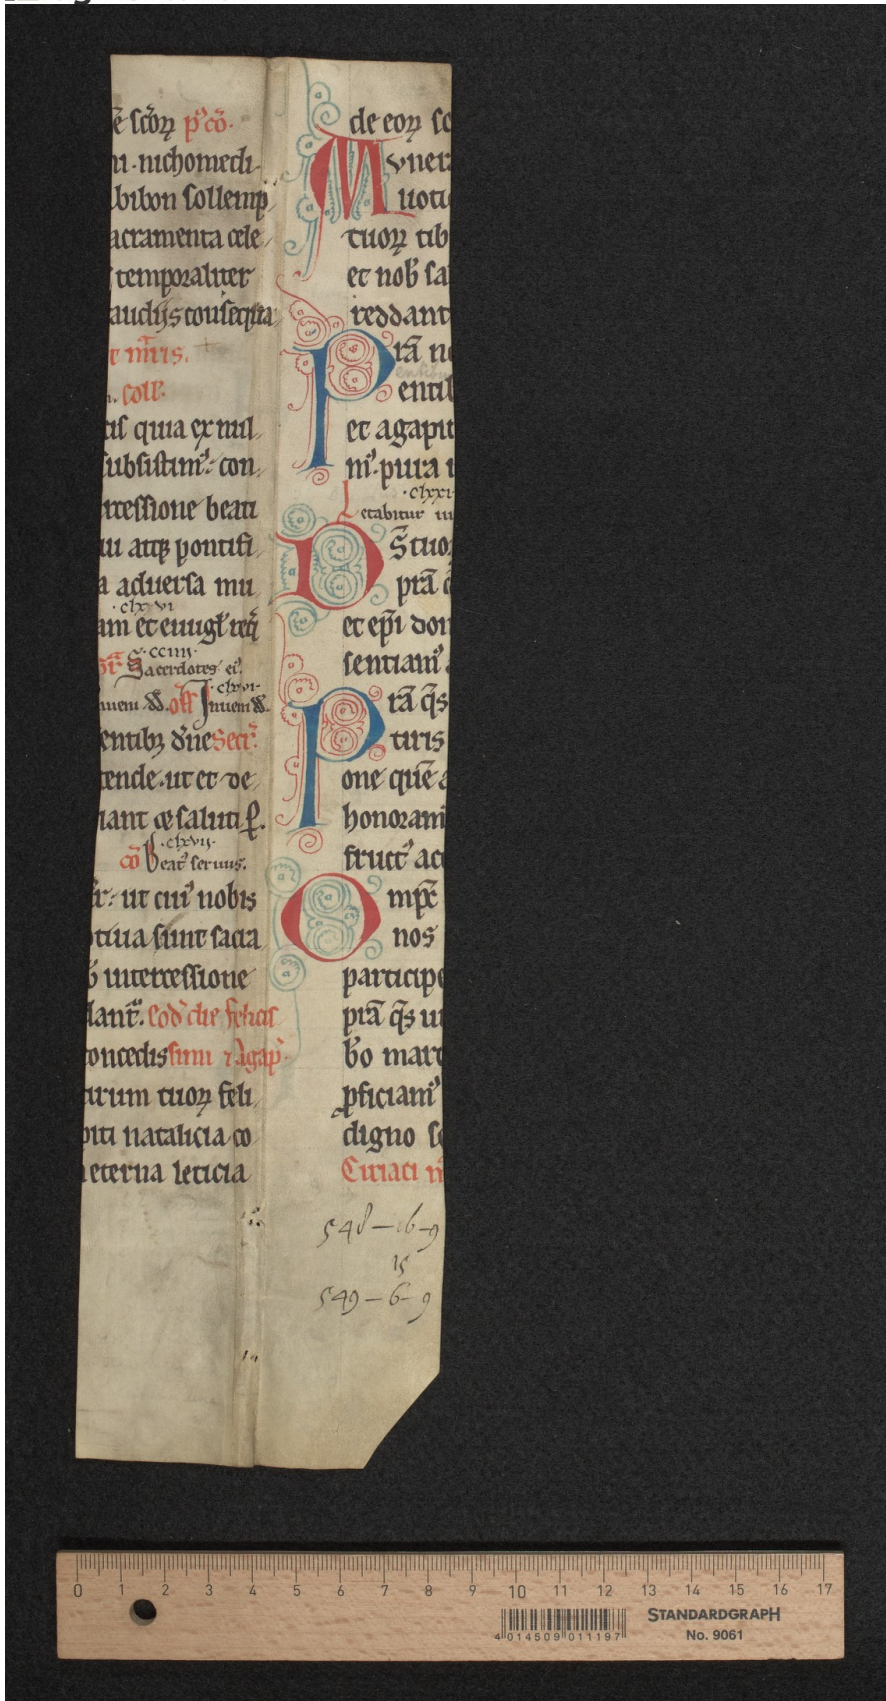 ẽ scõꝝ p̾ cõ.
ni. nichomedi
bibon sollemp
acramenta cele
temporaliter
audijs consequa
mr̃is.
coll̾.
tis quia ex nul
subsistim᾿ con
rcessione beati
atqꝫ pontifi
a aduersa mu
clxvi
am et euuḡł req̃
cciiii
Sacerdotes ei᾿.
clxvi
inueni ꝟ. off Inueni ꝟ.
entibꝫ dñe Secr̃.
tende. ut et de
iant de saluti ꝑ.
clxvii
cõ Beat᾿ seruus.
r̃: ut cui᾿ nobis
otiua sunt sacra
intercessione
lant̃. Eod̾ die felicis
concedis simi ⁊ Agap̾.
tirum tuoꝝ feli
piti natalicia co
eterna leticia
de eoꝝ sc
Muner
uoti
tuoꝝ tib
et nob̾ sa
reddant
Prã n
entib
et agapit
ni᾿. pura
clxxi
Letabitur iu
D S̃ tuo
prã q̃
et ep̃i don
sentiam᾿
Prã q̃s
tiris
one quẽ a
honoram
fruct᾿ ac
Omp̃
nos
participe
prã q̃s u
b̾o mart
ꝓficiam᾿
digno s
Ciriaci m̃
548 - 16 - 9
15
549 - 6 - 9
0 1 2 3 4 5 6 7 8 9 10 11 12 13 14 15 16 17
STANDARDGRAPH
4 014509 011197
No. 9061